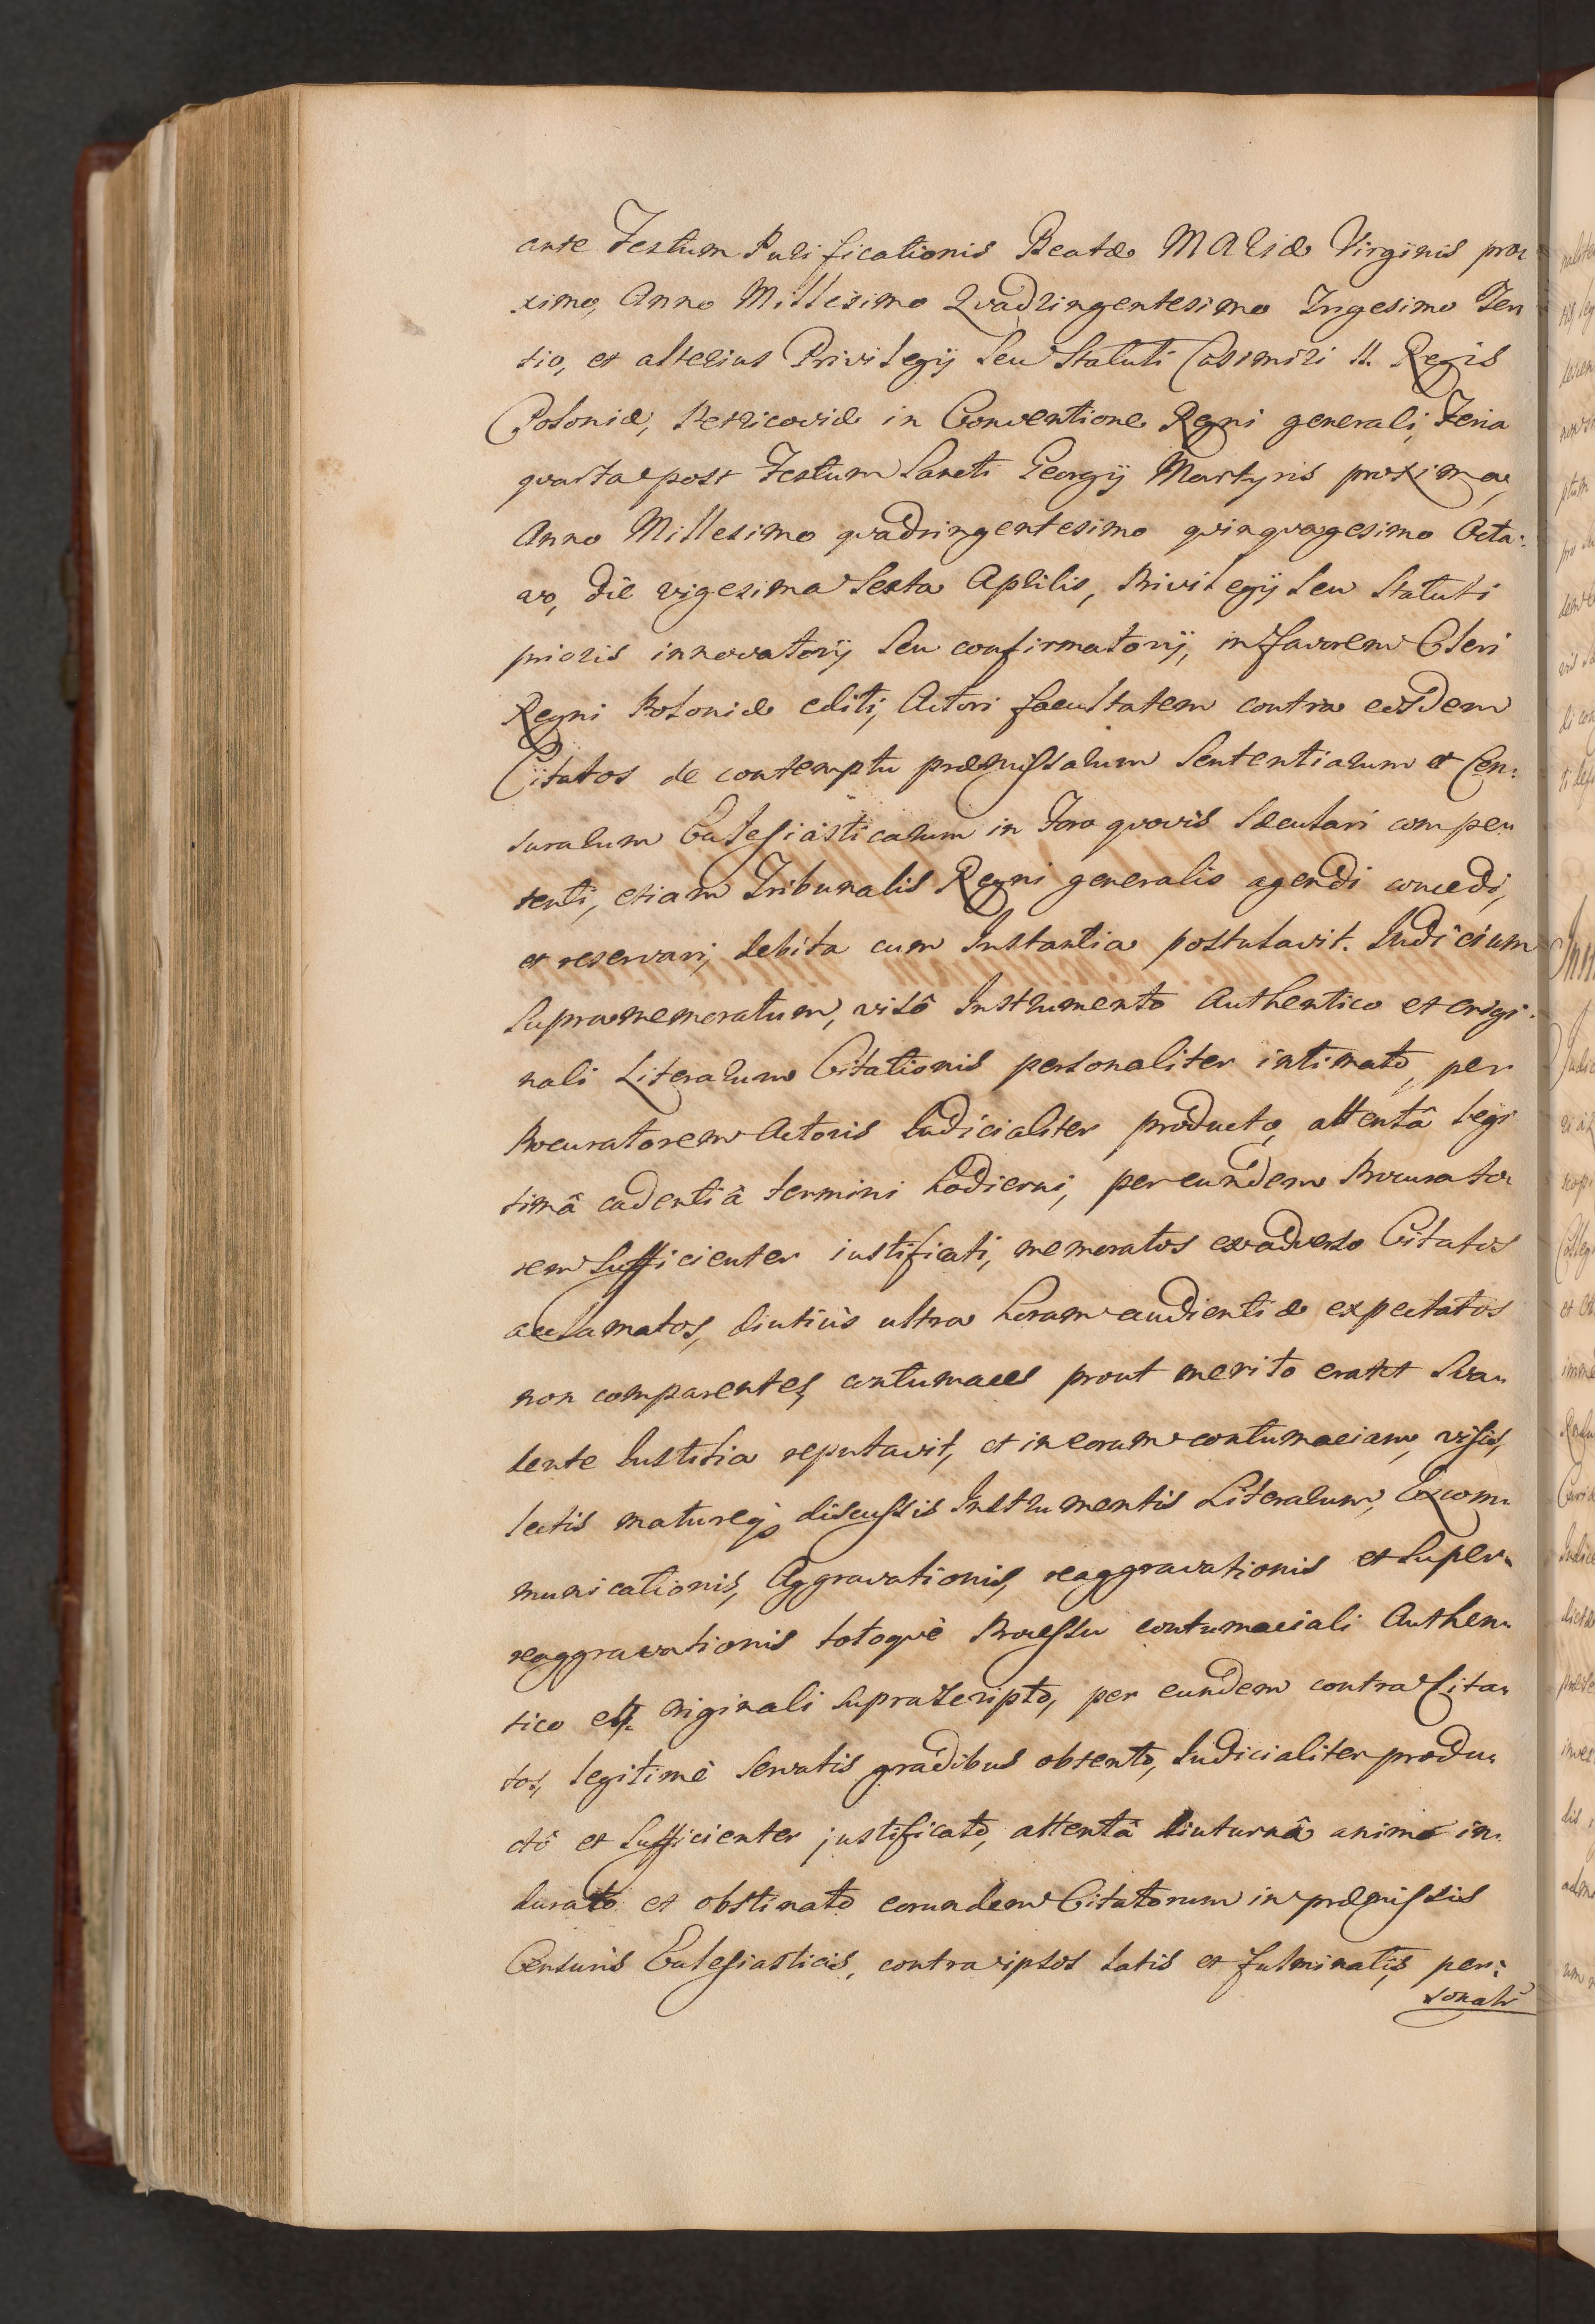 ante Festum Purificationis Beatæ MARiæ Virginis pro-
ximo, Anno Millesimo Quadringentesimo Trigesimo Ter-
tio, et alterius Privilegij Seu Statuti Casimiri II. Regis
Poloniæ, Petricoviæ in Conventione Regni generali, Feria
quarta post Festum Sancti Georgij Martyris proxima,
Anno Millesimo quadringentesimo quinquagesimo Octa-
vo, die vigesima Sexta Aprilis, Privilegij Seu Statuti
prioris innovatorij Seu confirmatorij, in favorem Cleri
Regni Poloniæ editi, Actori facultatem contra eosdem
Citatos de contemptu præmissarum Sententiarum et Cen-
surarum Ecclesiasticarum in Foro quovis Sæculari compe-
tenti, etiam Tribunalis Regni generalis agendi concedi,
et reservari, debita cum Instantia postulavit. Judicium
Supramemoratum, visô Instrumento Authentico et origi-
nali Literarum Citationis personaliter intimato, per
Procuratorem Actoris Judicialiter producto, attentâ legi
timâ cadentiâ termini hodierni, per eundem Procurato-
rem Sufficienter iustificati, memoratos exadverso Citatos
acclamatos, diutius ultra horam audientiæ expectatos
non comparentes, contumaces prout merito erat et Sva-
dente Justitia reputavit, et in eorum contumaciam, visis,
lectis matureq; discussis Instrumentis Literarum, Excom-
municationis, Aggravationis, reaggravationis et Super-
reaggravationis totoquè Processu contumaciali Authen-
tico et originali Suprascripto, per eundem contra Cita-
tos, legitimè Servatis gradibus obtento, Judicialiter produ-
ctô et Sufficienter justificato, attentâ diuturnâ animo in-
durato et obstinato eorundem Citatorum in præmissis
Censuris Ecclesiasticis, contra ipsos latis et fulminatis, per-
sonali